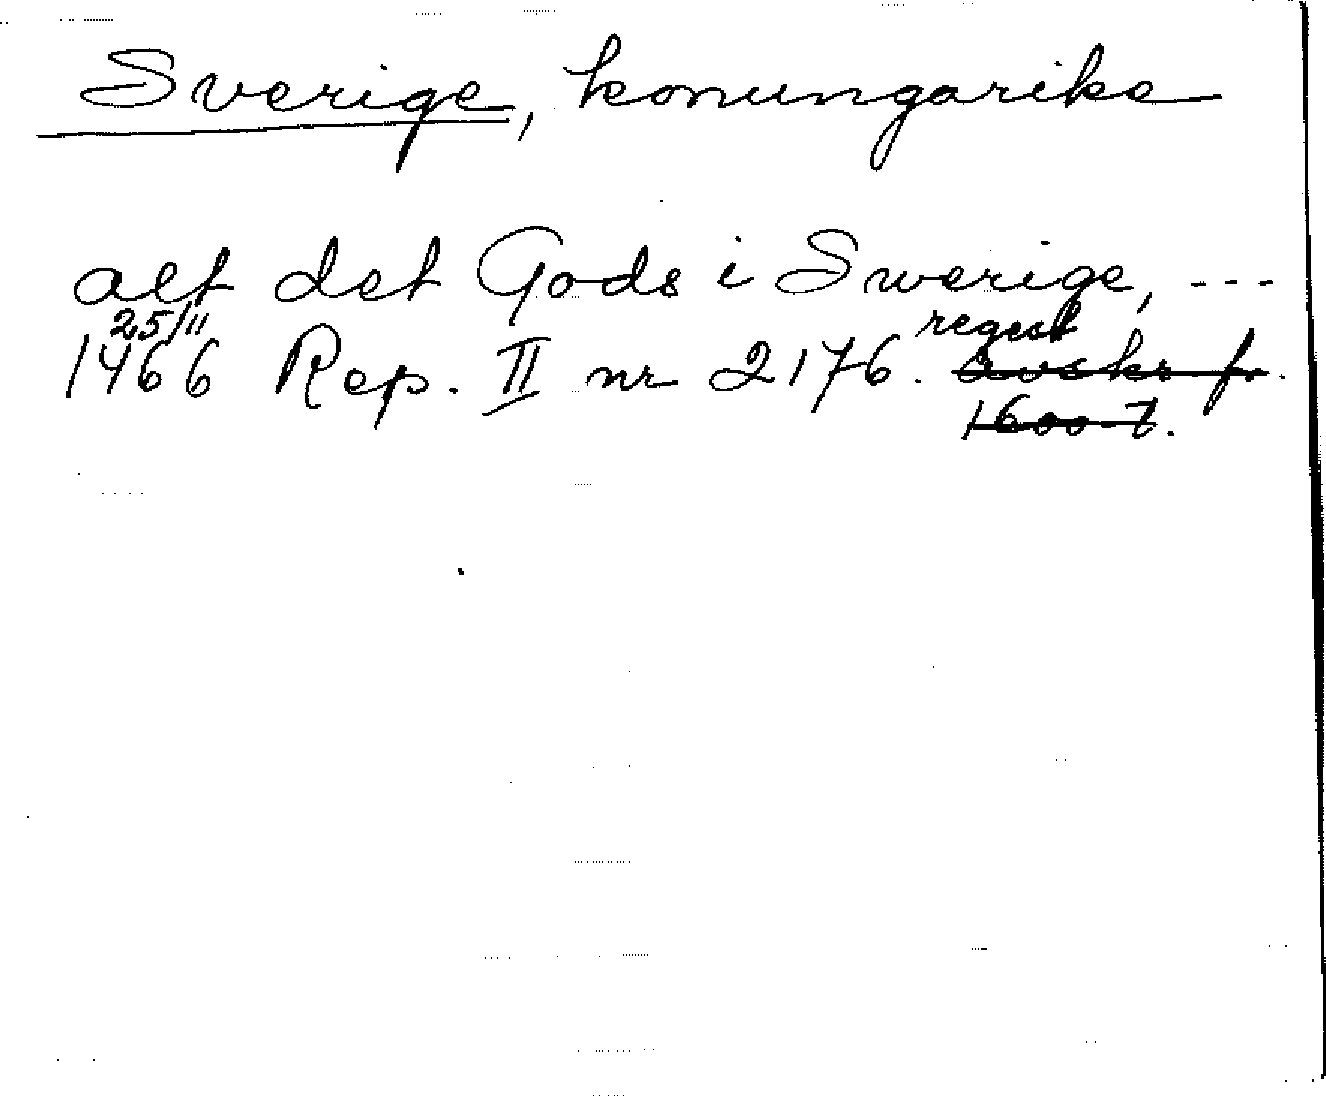 Sverige, konungarike
alt det Gods i Swerige, ---
25/11 regest
1466 Rep. II nr 2176. avskr fr.
1600-t.